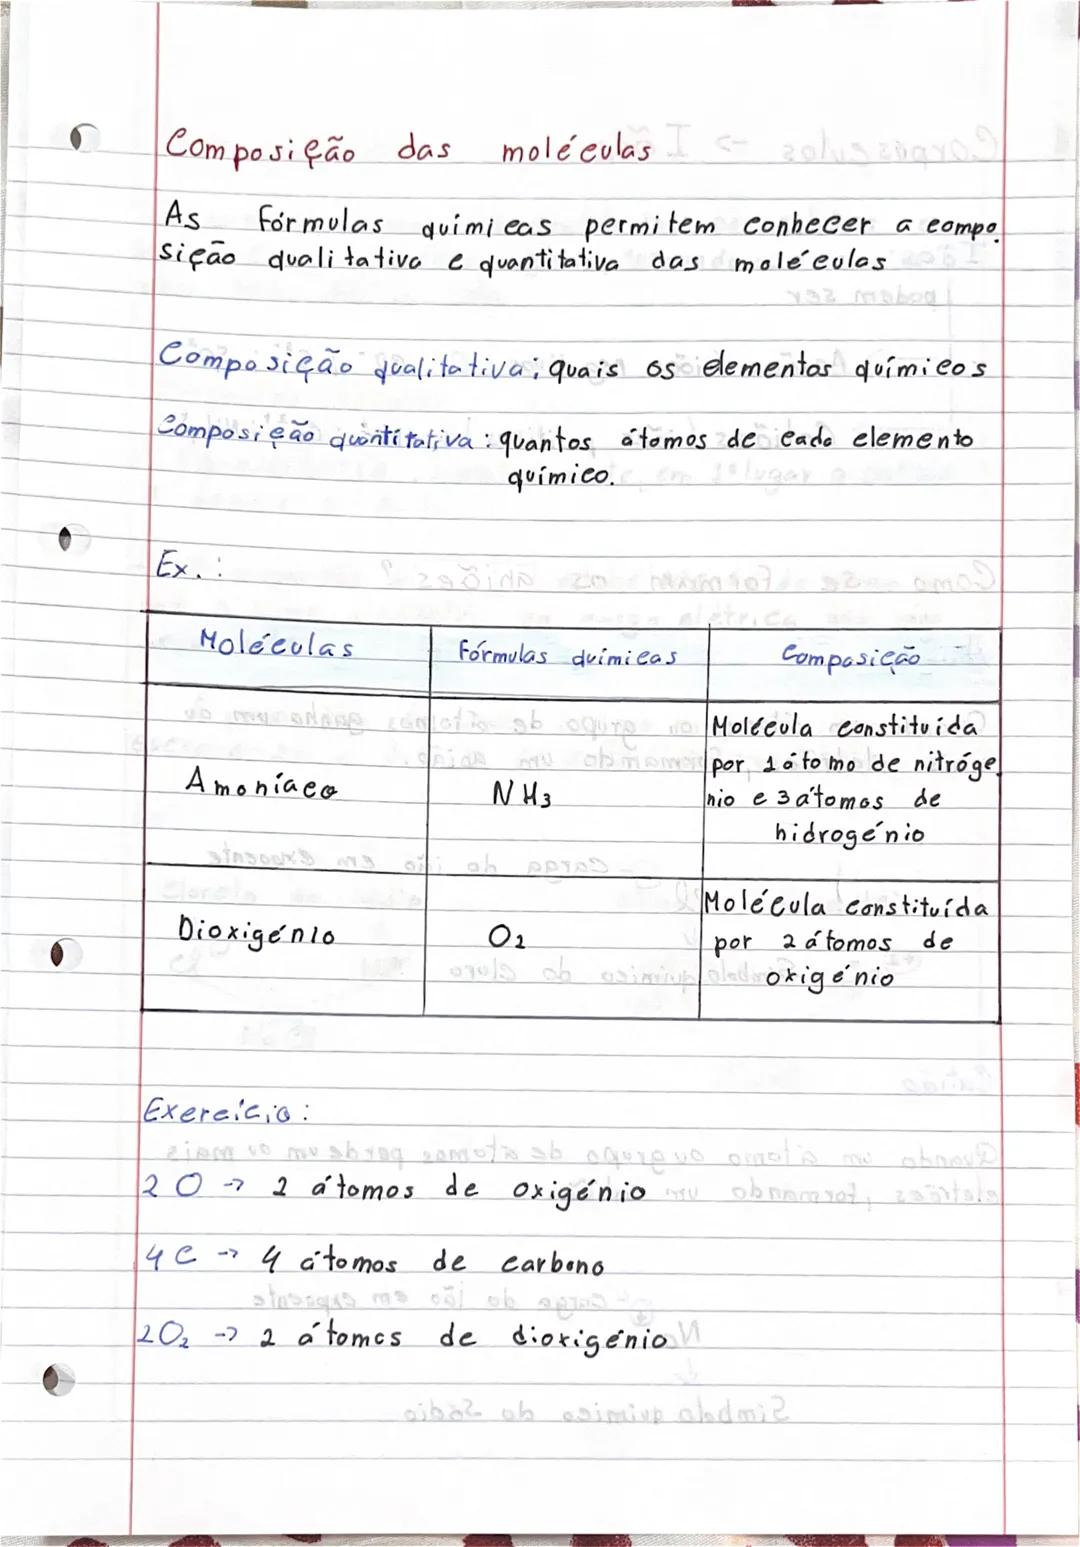 Composição das moléculas
As fórmulas químicas permitem conhecer a compo
sição qualitativa e quantitativa das moléculas
Composição qualitativa: quais os elementos químicos
Composição quantitativa: quantos átomos de cada elemento
químico.
Ex.:
Moléculas Fórmulas químicas Composição
Amoníaco NH3 Molécula constituída
por 1 átomo de nitrogé
nio e 3 átomos de
hidrogénio
Dioxigénio O2 Molécula constituída
por 2 átomos de
oxigénio
Exercício:
2 O -> 2 átomos de oxigénio
4 C -> 4 átomos de carbono
2O2 -> 2 átomos de dioxigénio